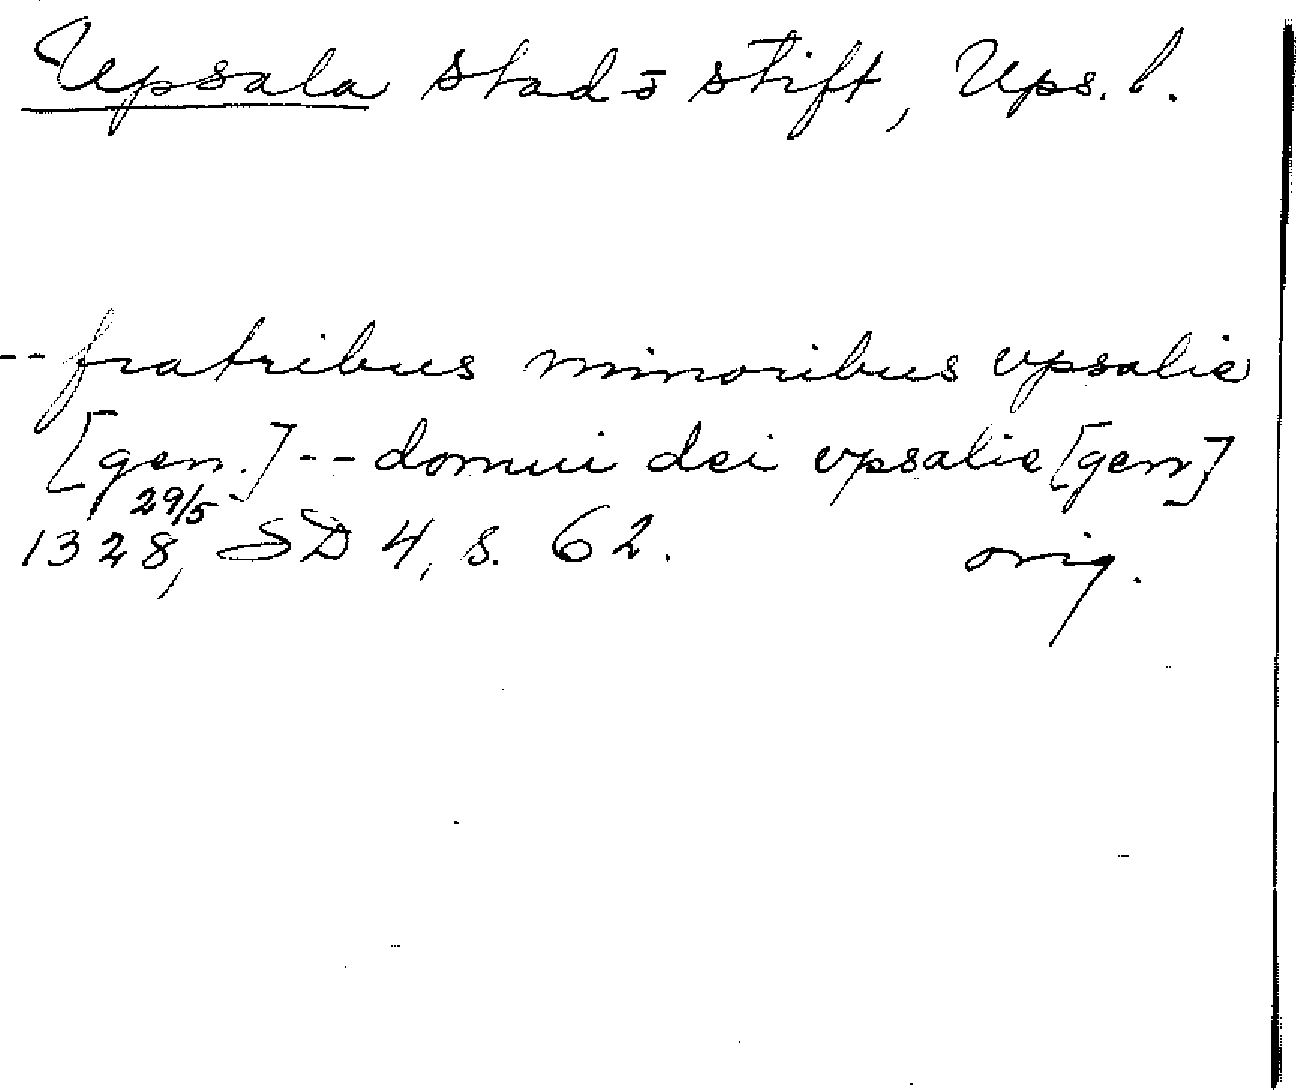 Upsala stad o stift, Ups. l.
-- fratribus minoribus vpsalie
[gen.] -- domui dei vpsalie [gen]
29/5
1328, SD 4, s. 62. orig.